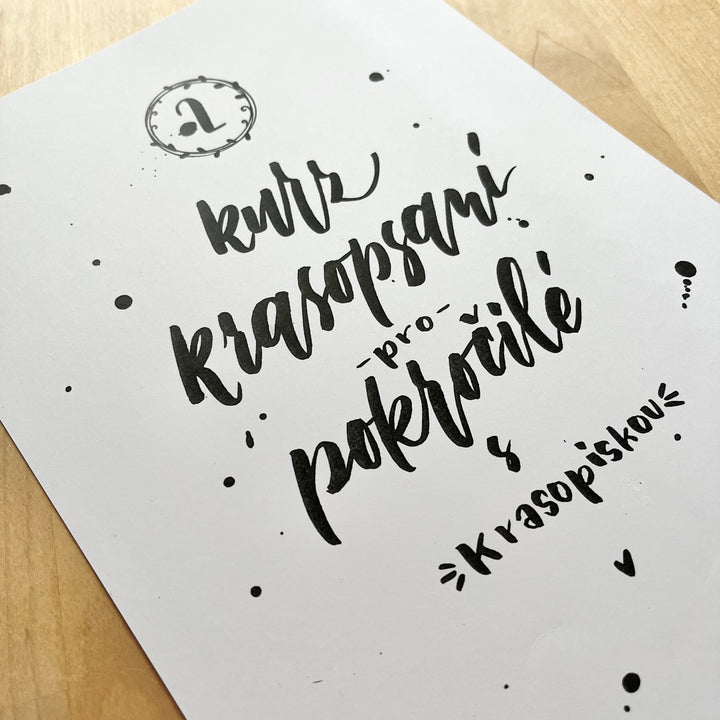 a
kurz
krasopsaní
-pro-
pokročilé
s
krasopiskou